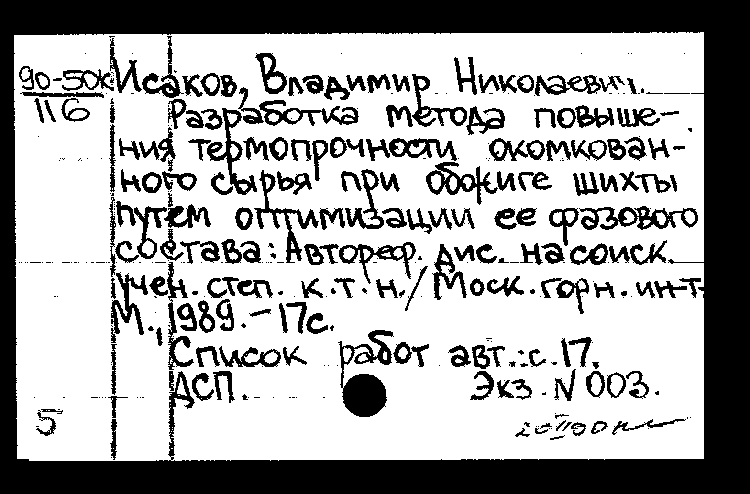 90-50к Исаков, Владимир Николаевич.
116 Разработка метода повыше-
ния термопрочности окомкован-
ного сырья при обжиге шихты
путем оптимизации ее фазового
состава: Автореф. дис. на соиск.
учен. степ. к.т.н./Моск.горн.ин-т.
М., 1989.-17с.
Список работ авт.:с.17.
ДСП. Экз. N 003.
5